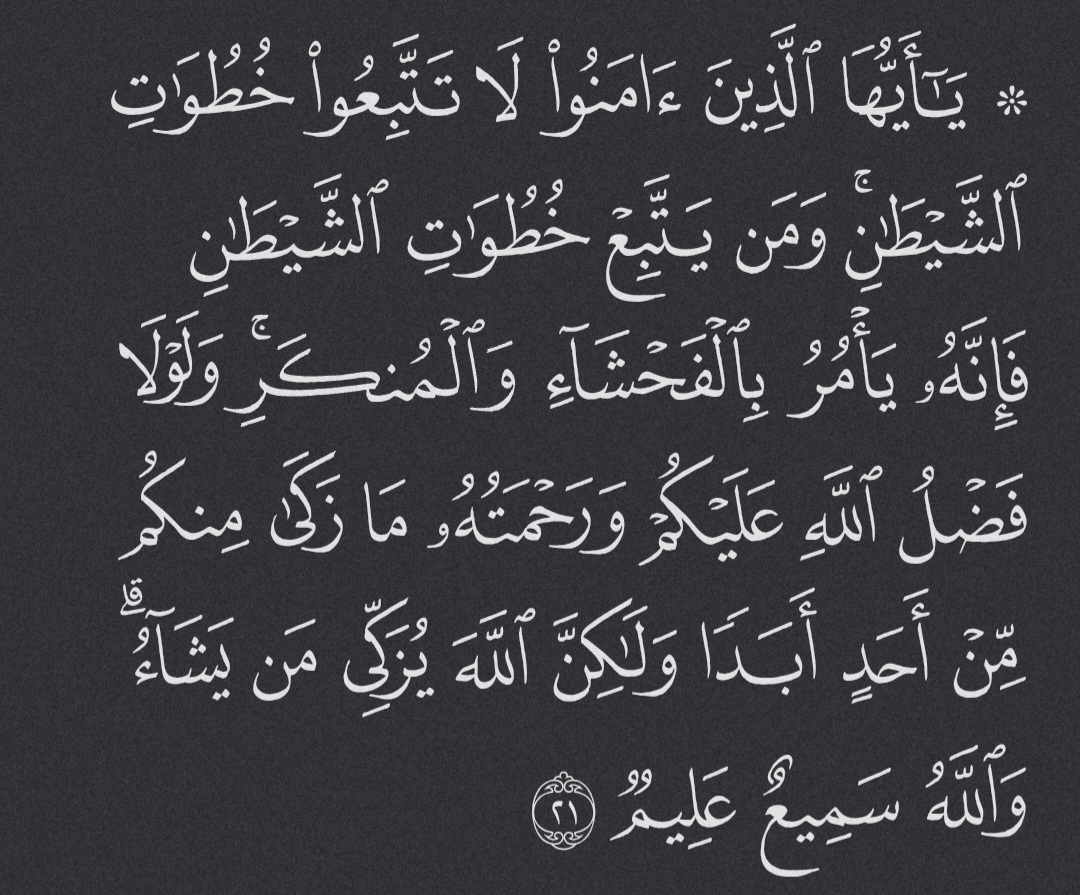 ۞ يَـٰٓأَيُّهَا ٱلَّذِينَ ءَامَنُوا۟ لَا تَتَّبِعُوا۟ خُطُوَٰتِ
ٱلشَّيْطَـٰنِ ۚ وَمَن يَتَّبِعْ خُطُوَٰتِ ٱلشَّيْطَـٰنِ
فَإِنَّهُۥ يَأْمُرُ بِٱلْفَحْشَآءِ وَٱلْمُنكَرِ ۚ وَلَوْلَا
فَضْلُ ٱللَّهِ عَلَيْكُمْ وَرَحْمَتُهُۥ مَا زَكَىٰ مِنكُم
مِّنْ أَحَدٍ أَبَدًا وَلَـٰكِنَّ ٱللَّهَ يُزَكِّى مَن يَشَآءُ ۗ
وَٱللَّهُ سَمِيعٌ عَلِيمٌ ٢١